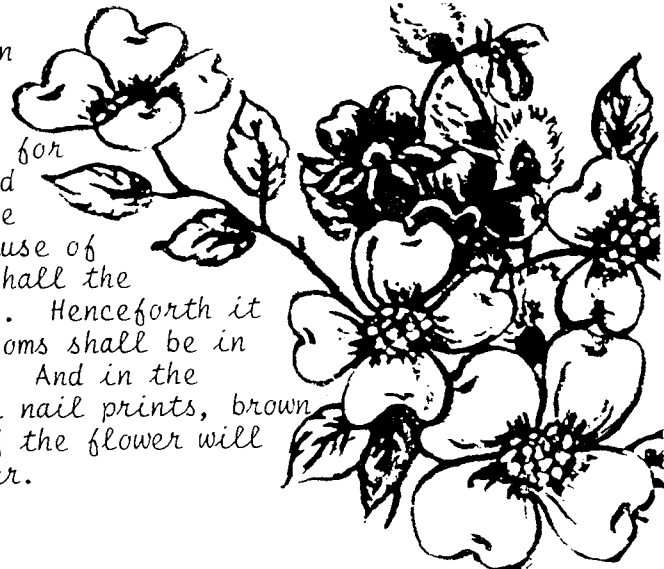 for
use of
hall the
. Henceforth it
oms shall be in
And in the
nail prints, brown
the flower will
r.